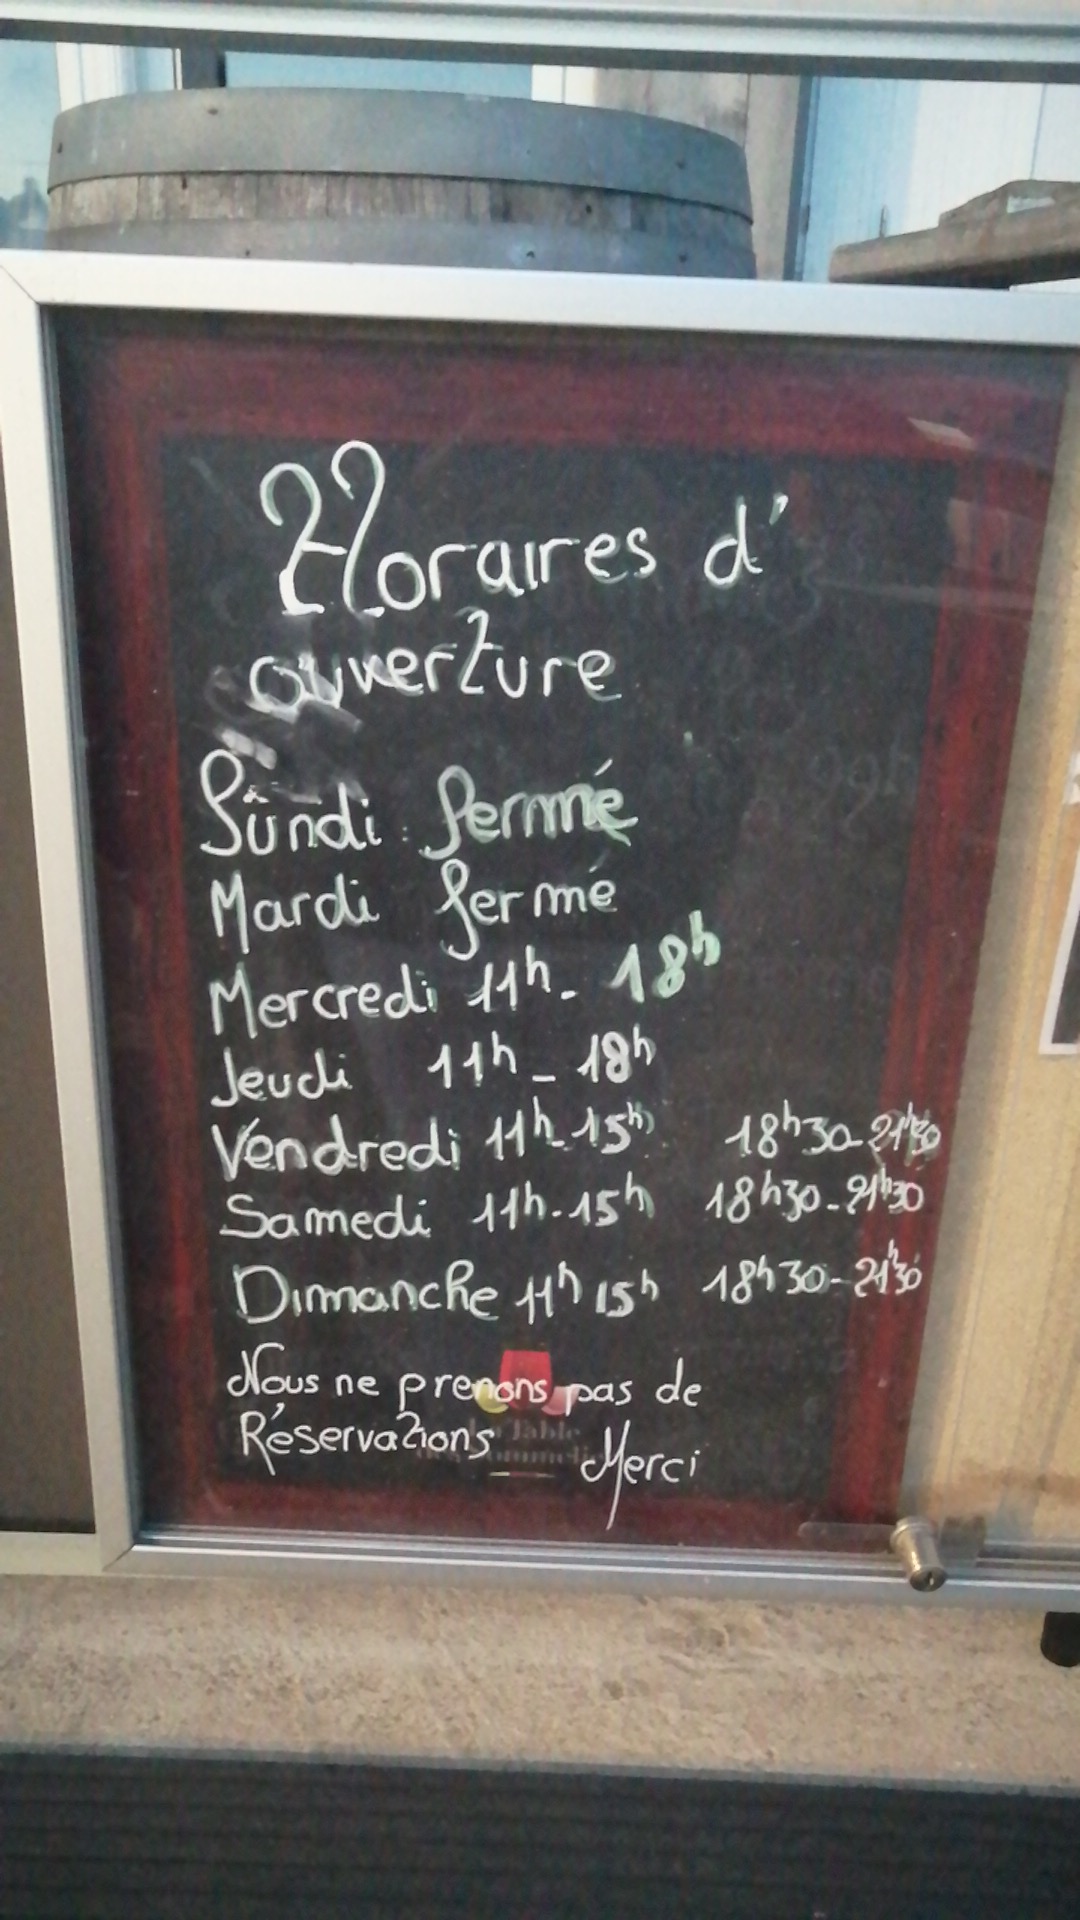 Horaires d'
ouverture
Lundi : fermé
Mardi fermé
Mercredi 11h - 18h
Jeudi 11h - 18h
Vendredi 11h-15h 18h30-21h30
Samedi 11h-15h 18h30-21h30
Dimanche 11h 15h 18h30-21h30
Nous ne prenons pas de
Réservations Merci
Table